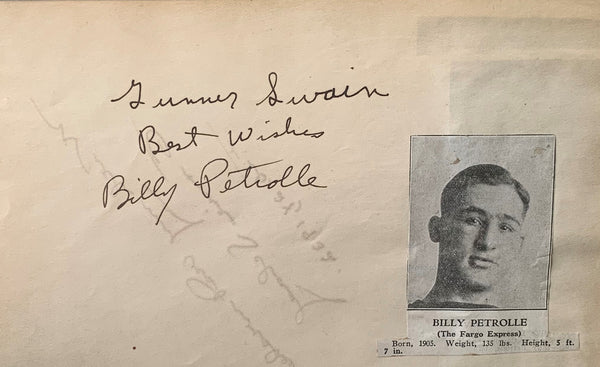 Gunner Swain
Best Wishes
Billy Petrolle
BILLY PETROLLE
(The Fargo Express)
Born, 1905. Weight, 135 lbs. Height, 5 ft.
7 in.